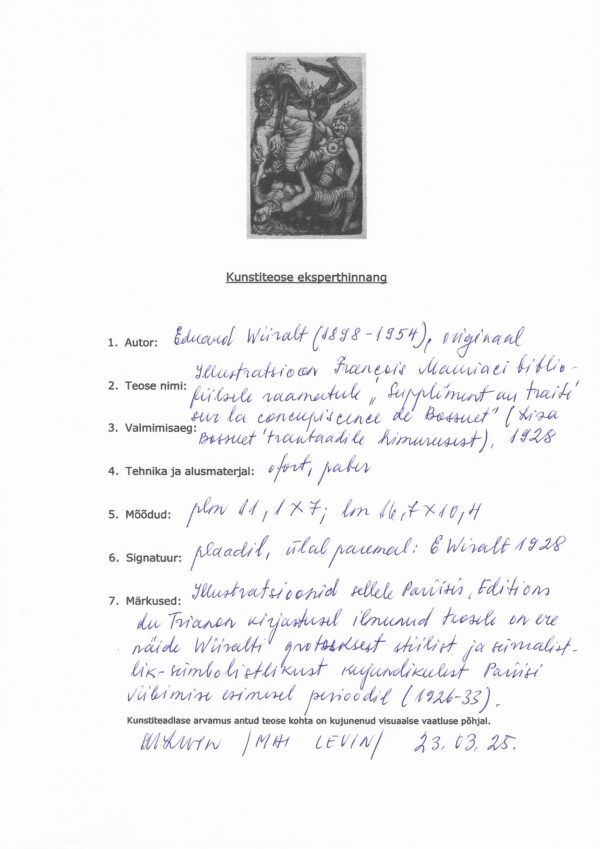 Kunstiteose eksperthinnang
1. Autor: Eduard Wiiralt (1898-1954), originaal
Illustratsioon François Mauriaci biblio-
2. Teose nimi: fiilsele raamatule „Supplément au traité
sur la concupiscence de Bossuet" (Lisa
3. Valmimisaeg: Bossuet' traktaadile himurusest), 1928
4. Tehnika ja alusmaterjal: ofort, paber
5. Mõõdud: plm 11,1 x 7; lm 16,7 x 10,4
6. Signatuur: plaadil, ülal paremal: E Wiralt 1928
7. Märkused: Illustratsioonid sellele Pariisis, Editions
du Trianon kirjastusel ilmunud teosele on ere
näide Wiiralti grotesksest stiilist ja
lik-sümbolistlikust kujundikeelest Pariisi
viibimise esimesel perioodil (1926-33).
Kunstiteadlase arvamus antud teose kohta on kujunenud visuaalse vaatluse põhjal.
/MAI LEVIN/ 23.03.25.